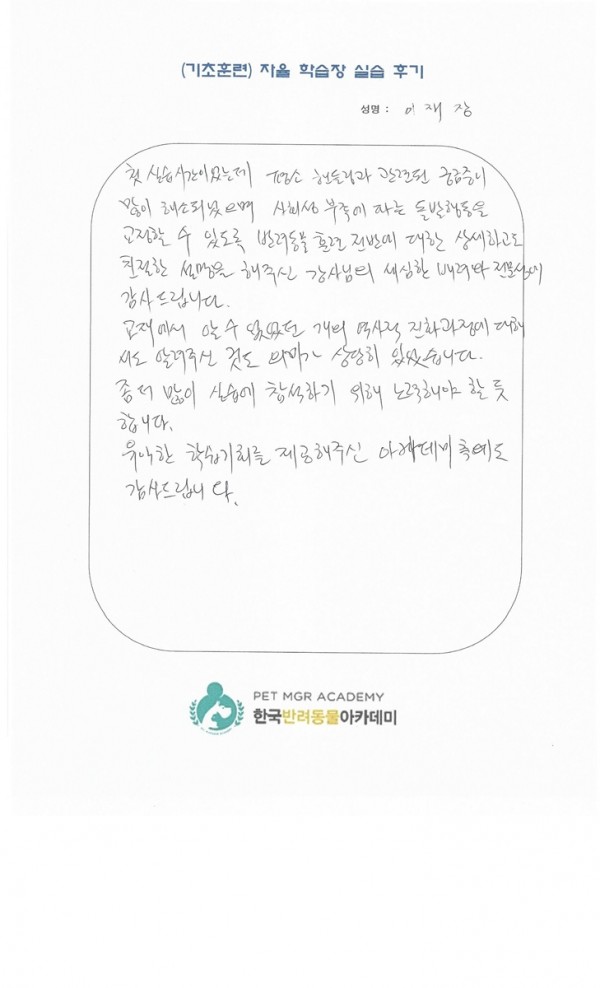 (기초훈련) 자율 학습장 실습 후기
성명 : 이재장
첫 실습시간이었는데 평소 핸들링과 관련된 궁금증이
많이 해소되었으며 사회성 부족에 따른 돌발행동을
교정할 수 있도록 반려동물 훈련 전반에 대한 상세하고도
친절한 설명을 해주신 강사님의 세심한 배려와 전문성에
감사드립니다.
교재에서 알 수 없었던 개의 역사적 진화과정에 대해
서도 알려주신 것도 의미가 상당히 있었습니다.
좀 더 많이 실습에 참석하기 위해 노력해야 할 듯
합니다.
유익한 학습기회를 제공해주신 아카데미 측에도
감사드립니다.
PET MGR ACADEMY
한국반려동물아카데미